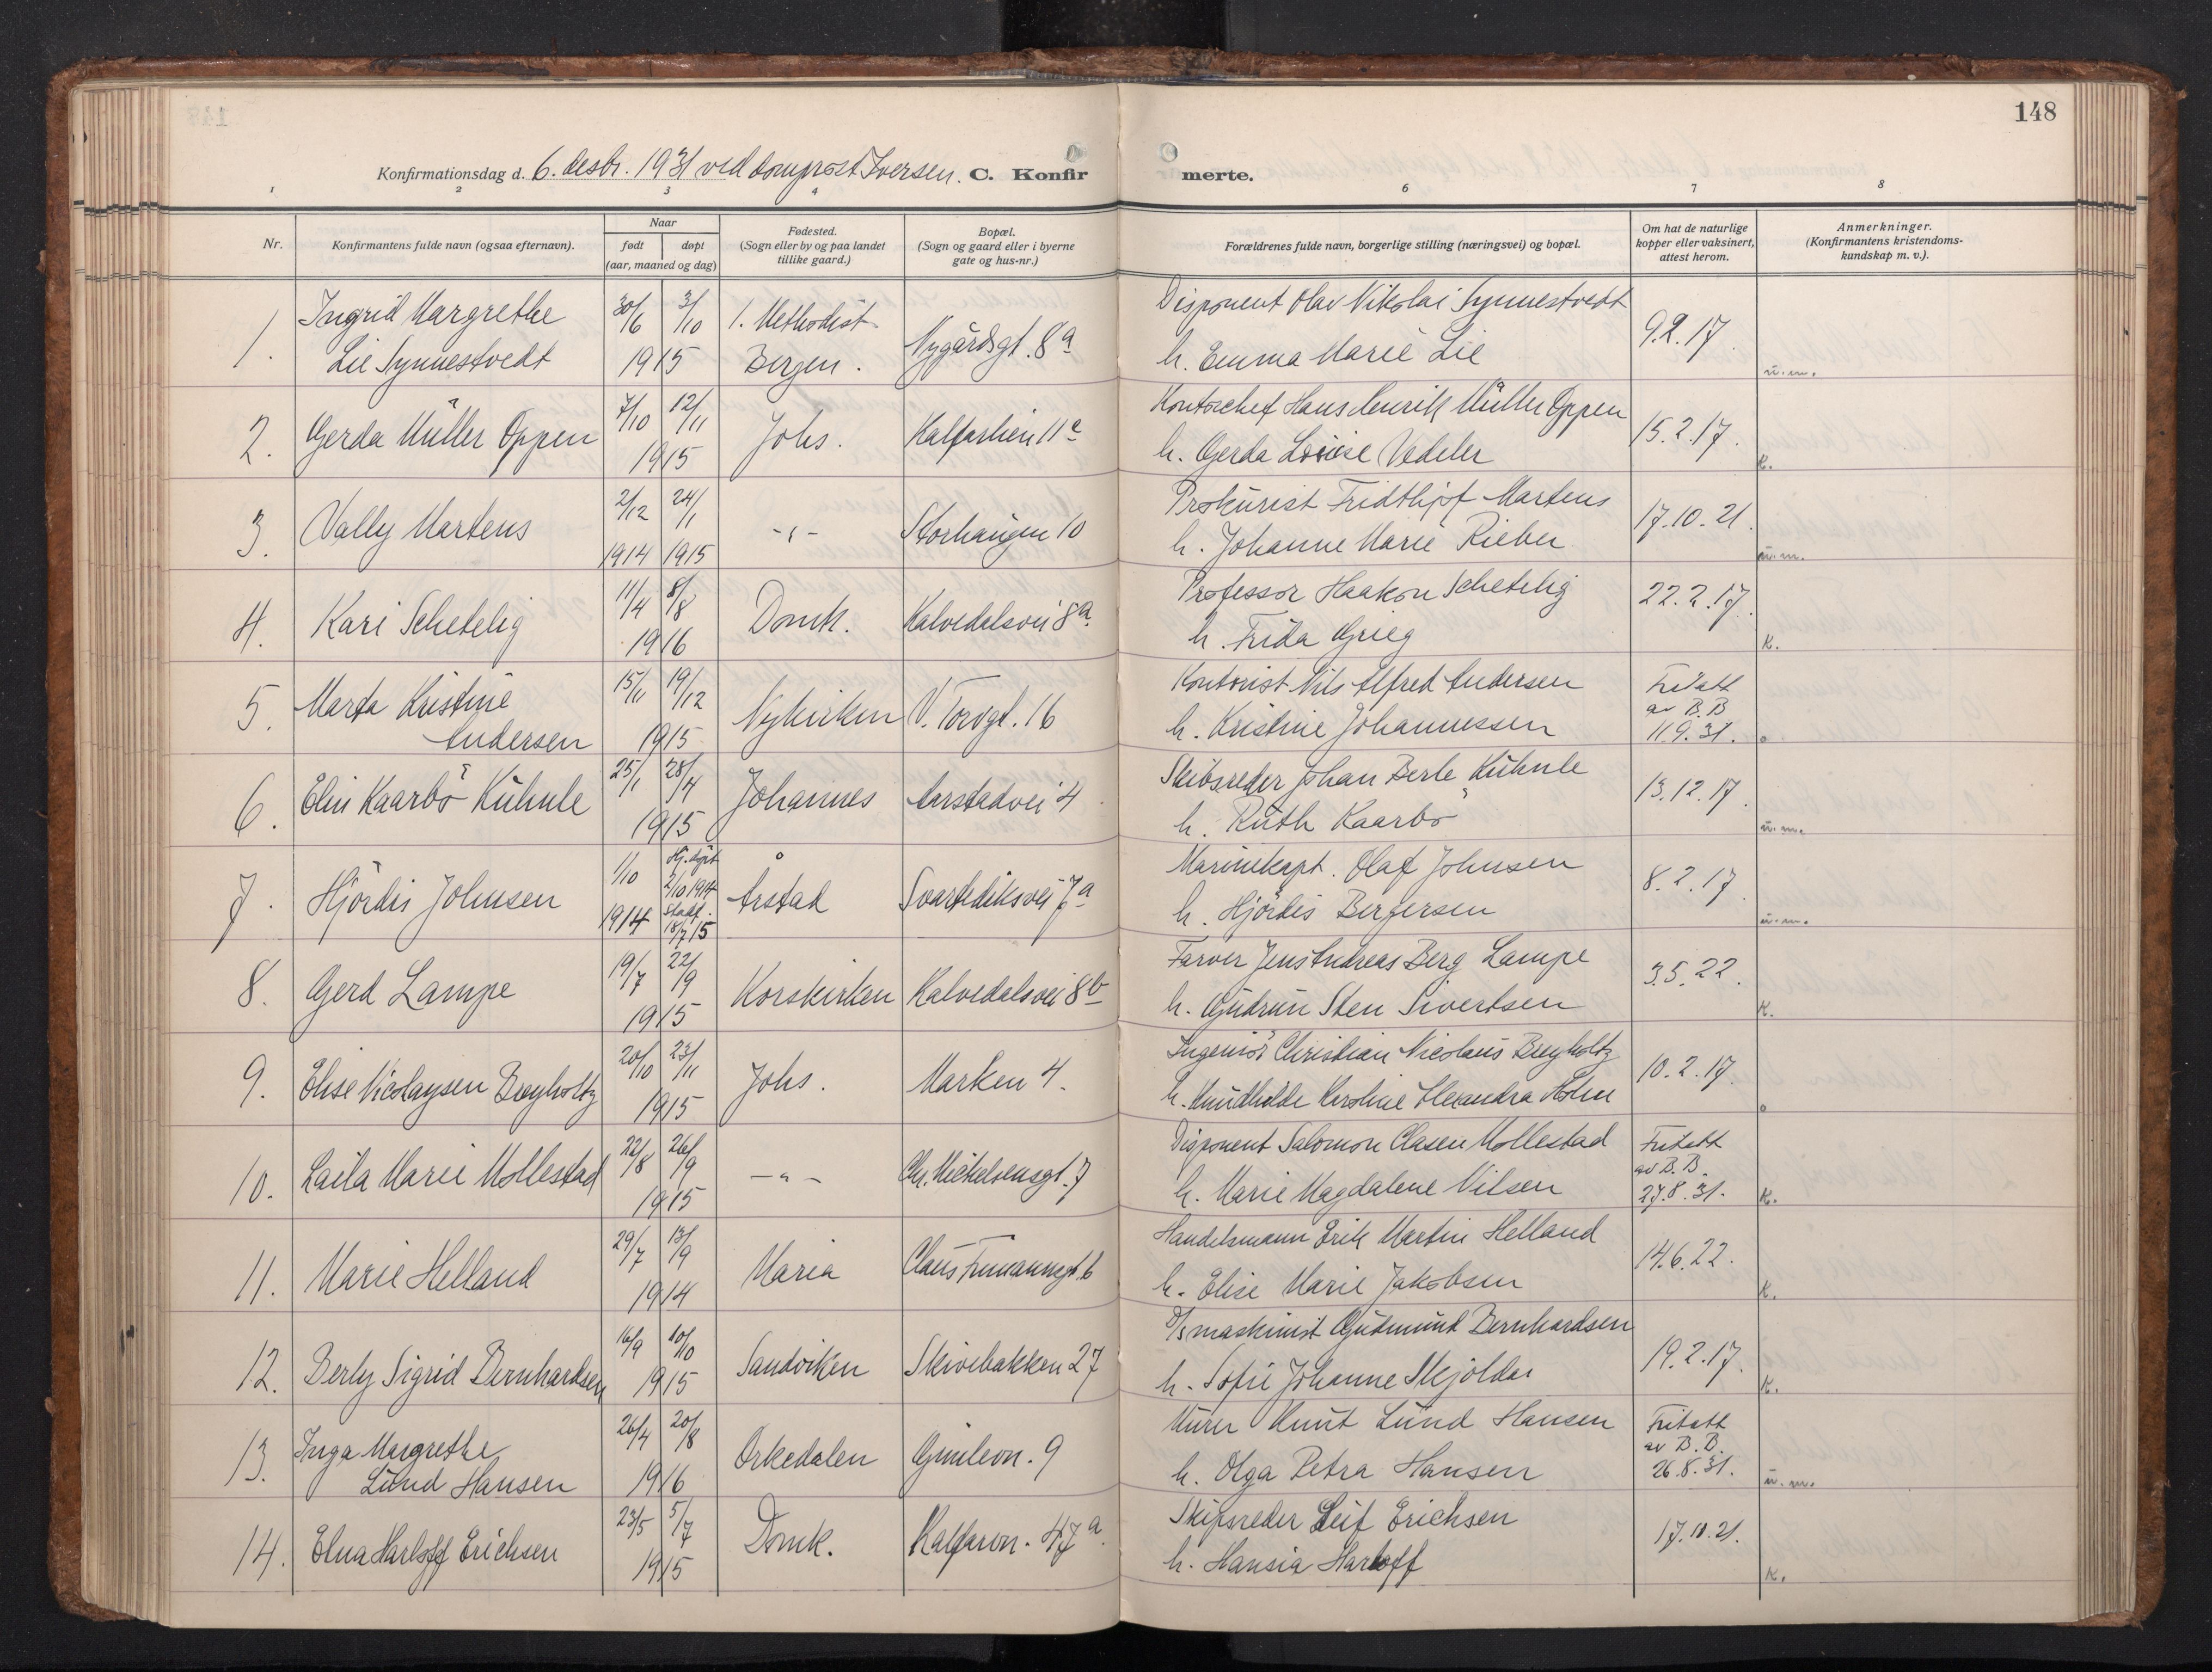 148
Konfirmationsdag d. 6. desbr. 1931 ved domprost Iversen. C. Konfirmerte.
1 2 3 4 6 7 8
Nr. Konfirmantens fulde navn (ogsaa efternavn). Naar født døpt (aar, maaned og dag) Fødested. (Sogn eller by og paa landet tillike gaard.) Bopæl. (Sogn og gaard eller i byerne gate og hus-nr.) Forældrenes fulde navn, borgerlige stilling (næringsvei) og bopæl. Om hat de naturlige kopper eller vaksinert, attest herom. Anmerkninger. (Konfirmantens kristendomskundskap m. v.).
1. Ingrid Margrethe Lie Synnestvedt 30/6 3/10 1915 1. Methodist Bergen. Nygårdsgt. 8a Disponent Olav Nikolai Synnestvedt
h. Emma Marie Lie 9.2.17. u.m.
2. Gerda Müller Oppen 7/10 12/11 1915 Johs. Kalfarlien 11a Kontorchef Hans Henrik Müller Oppen
h. Gerda Louise Vedeler 15.2.17. K.
3. Vally Martens 2/12 1914 24/1 1915 -"- Storhaugen 10 Prokurist Fridthjof Martens
h. Johanne Marie Rieber 17.10.21. u.m.
4. Kari Schetelig 11/4 8/8 1916 Domk. Kalvedalsvei 8a. Professor Haakon Schetelig
h. Frida Grieg 22.2.17. K.
5. Marta Kristine Andersen 15/11 19/12 1915 Nykirken V. Torvgt. 16 Kontorist Nils Alfred Andersen
h. Kristine Johannessen Fritatt av B.B 11.9.31. o
6. Elin Kaarbö Kühnle 25/1 28/4 1915 Johannes Aarstadvei 4 Skibsreder Johan Berle Kühnle
h. Ruth Kaarbö 13.12.17. u.m.
7. Hjördis Johnsen 1/10 1914 Hj. døpt 2/10 1914 Stadf. 18/7 15 Årstad Svartediksvei 7a Marinekapt. Olaf Johnsen
h. Hjördis Bergersen 8.2.17. u.m.
8. Gerd Lampe 19/7 22/9 1915 Korskirken Kalvedalsvei 8b Farver Jens Andreas Berg Lampe
h. Gudrun Sten Sivertsen 3.5.22. K.
9. Elise Nicolaysen Breyholtz 20/10 23/11 1915 Johs. Marken 4. Ingeniör Christian Nicolaus Breyholtz
h. Knudhilde Karoline Alexandra Holm 10.2.17. o
10. Laila Marie Mollestad 22/8 26/9 1915 -"- Chr. Michelsensgt. 7 Disponent Salomon Clasen Mollestad
h. Marie Magdalene Nilsen Fritatt av B.B. 27.8.31. K.
11. Marie Helland 29/7 13/9 1914 Maria Claus Frimannsgt. 6 Handelsmann Erik Martin Helland
h. Elise Marie Jakobsen 14.6.22. K.
12. Berly Sigrid Bernhardsen 16/9 10/10 1915 Sandviken Skivebakken 27 D/s maskinist Gudmund Bernhardsen
h. Sofie Johanne Skjöldar 19.2.17. K.
13. Inga Margrethe Lund Hansen 26/4 20/8 1916 Orkedalen Gimlevn. 9 Murer Knut Lund Hansen
h. Olga Petra Hansen Fritatt av B.B. 26.8.31. u.m.
14. Elna Harloff Erichsen 23/5 5/7 1915 Domk. Kalfarvn. 47a. Skipsreder Leif Erichsen
h. Hansia Harloff 17.10.21. K.